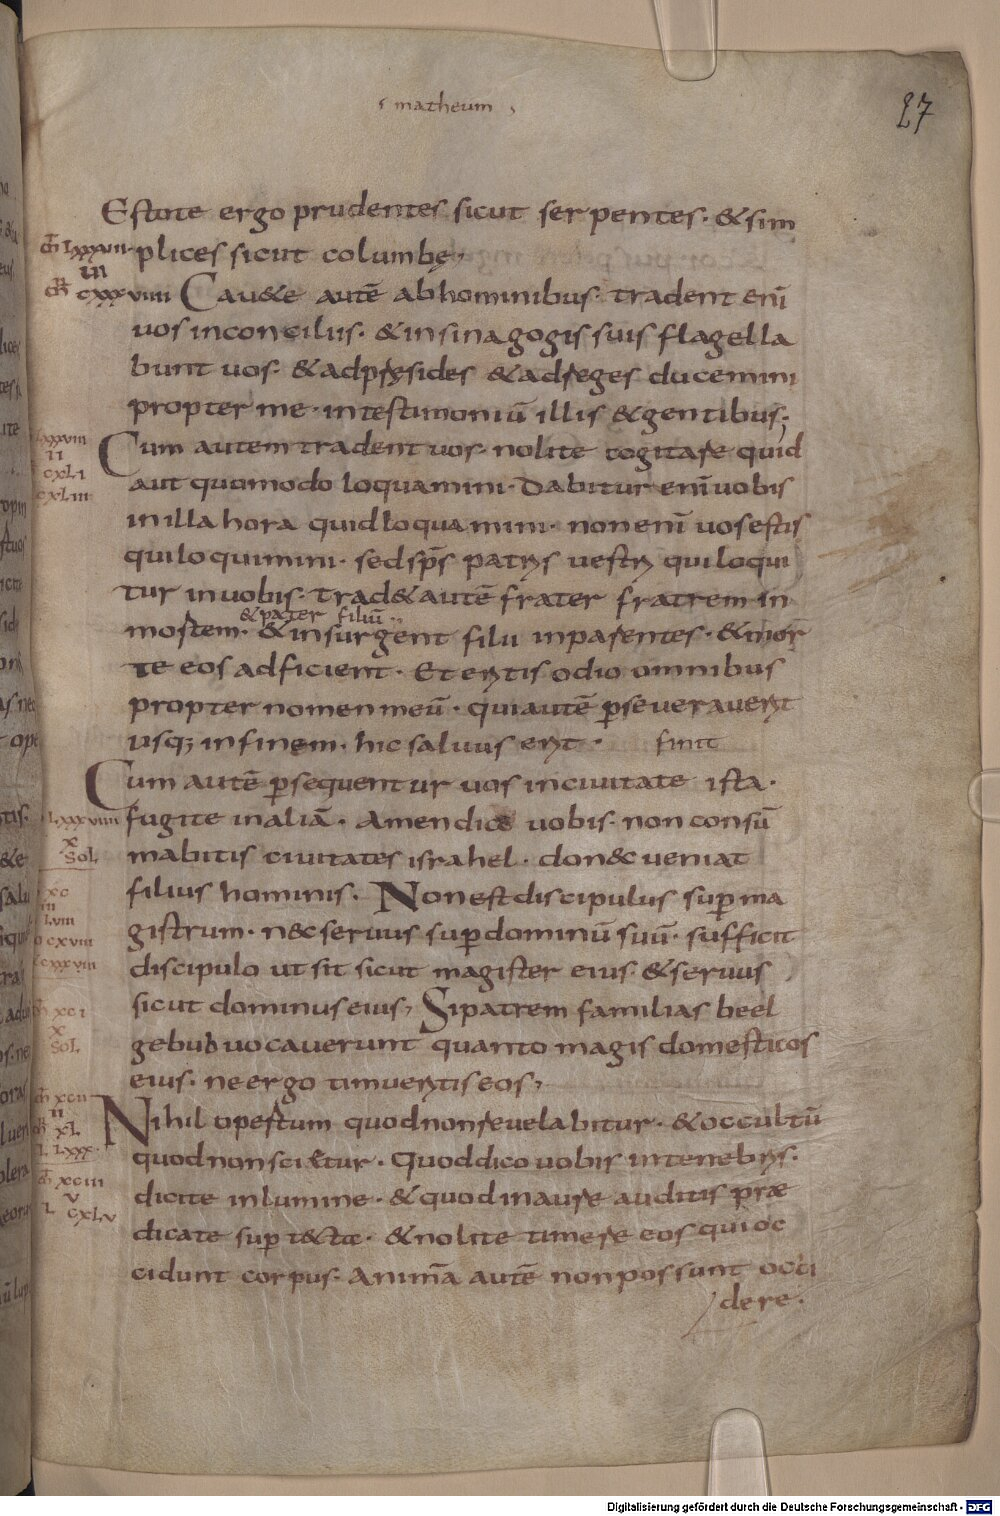 matheum
27
Estote ergo prudentes sicut serpentes· & sim
plices sicut columbę,
Cau&e autē abhominibus· tradent enī
uos inconcilus· & insinagogis suis flagella
bunt uos· & adpręsides & adreges ducemini
propter me· intestimoniū illis & gentibus;
Cum autem tradent uos· nolite cogitare quid
aut quomodo loquamini· Dabitur enī uobis
inilla hora quid loquamini· non enī uos estis
qui loquimini· sed sp̄s patris uestri qui loqui
tur in uobis· trad& autē frater fratrem in
& pater filiū
mortem· & insurgent filii inparentes· & mor
te eos adficient· Et eritis odio omnibus
propter nomen meū· qui autē p̱seuerauerit
usq; infinem· hic saluus erit· finit
Cum autē p̱sequentur uos inciuitate ista·
fugite inaliā· Amen dico uobis· non consū
mabitis ciuitates israhel· donec ueniat
filius hominis· Non est discipulus sup̱ ma
gistrum· n&c seruus sup̱ dominū suū· sufficit
discipulo ut sit sicut magister eius & seruus
sicut dominus eius, Si patrem familias beel
gebub uocauerunt quanto magis domesticos
eius· ne ergo timueritis eos,
Nihil opertum quod non reuelabitur· & occultū
quod non scietur· Quod dico uobis intenebris·
dicite inlumine· & quod inaure auditis præ
dicate sup̱ tecta· & nolite timere eos qui oc
cidunt corpus· Animā autē non possunt occi
dere·
LXXXVIII
III
CXXXVIIII
LXXXVIII
II
CXLI
CXLIII
LXXXVIIII
X
SOL
XC
III
LVIII
CXVIII
CXXVIII
XCI
X
SOL
XCII
II
XL
LXXX
XCIII
V
L CXLV
Digitalisierung gefördert durch die Deutsche Forschungsgemeinschaft - DFG